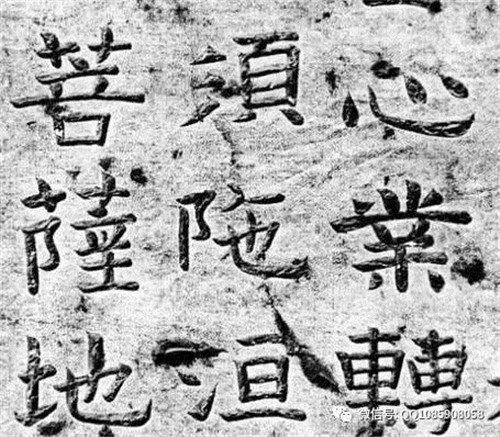 心業轉
須陁洹
菩薩地
微信号: QQ1085908058